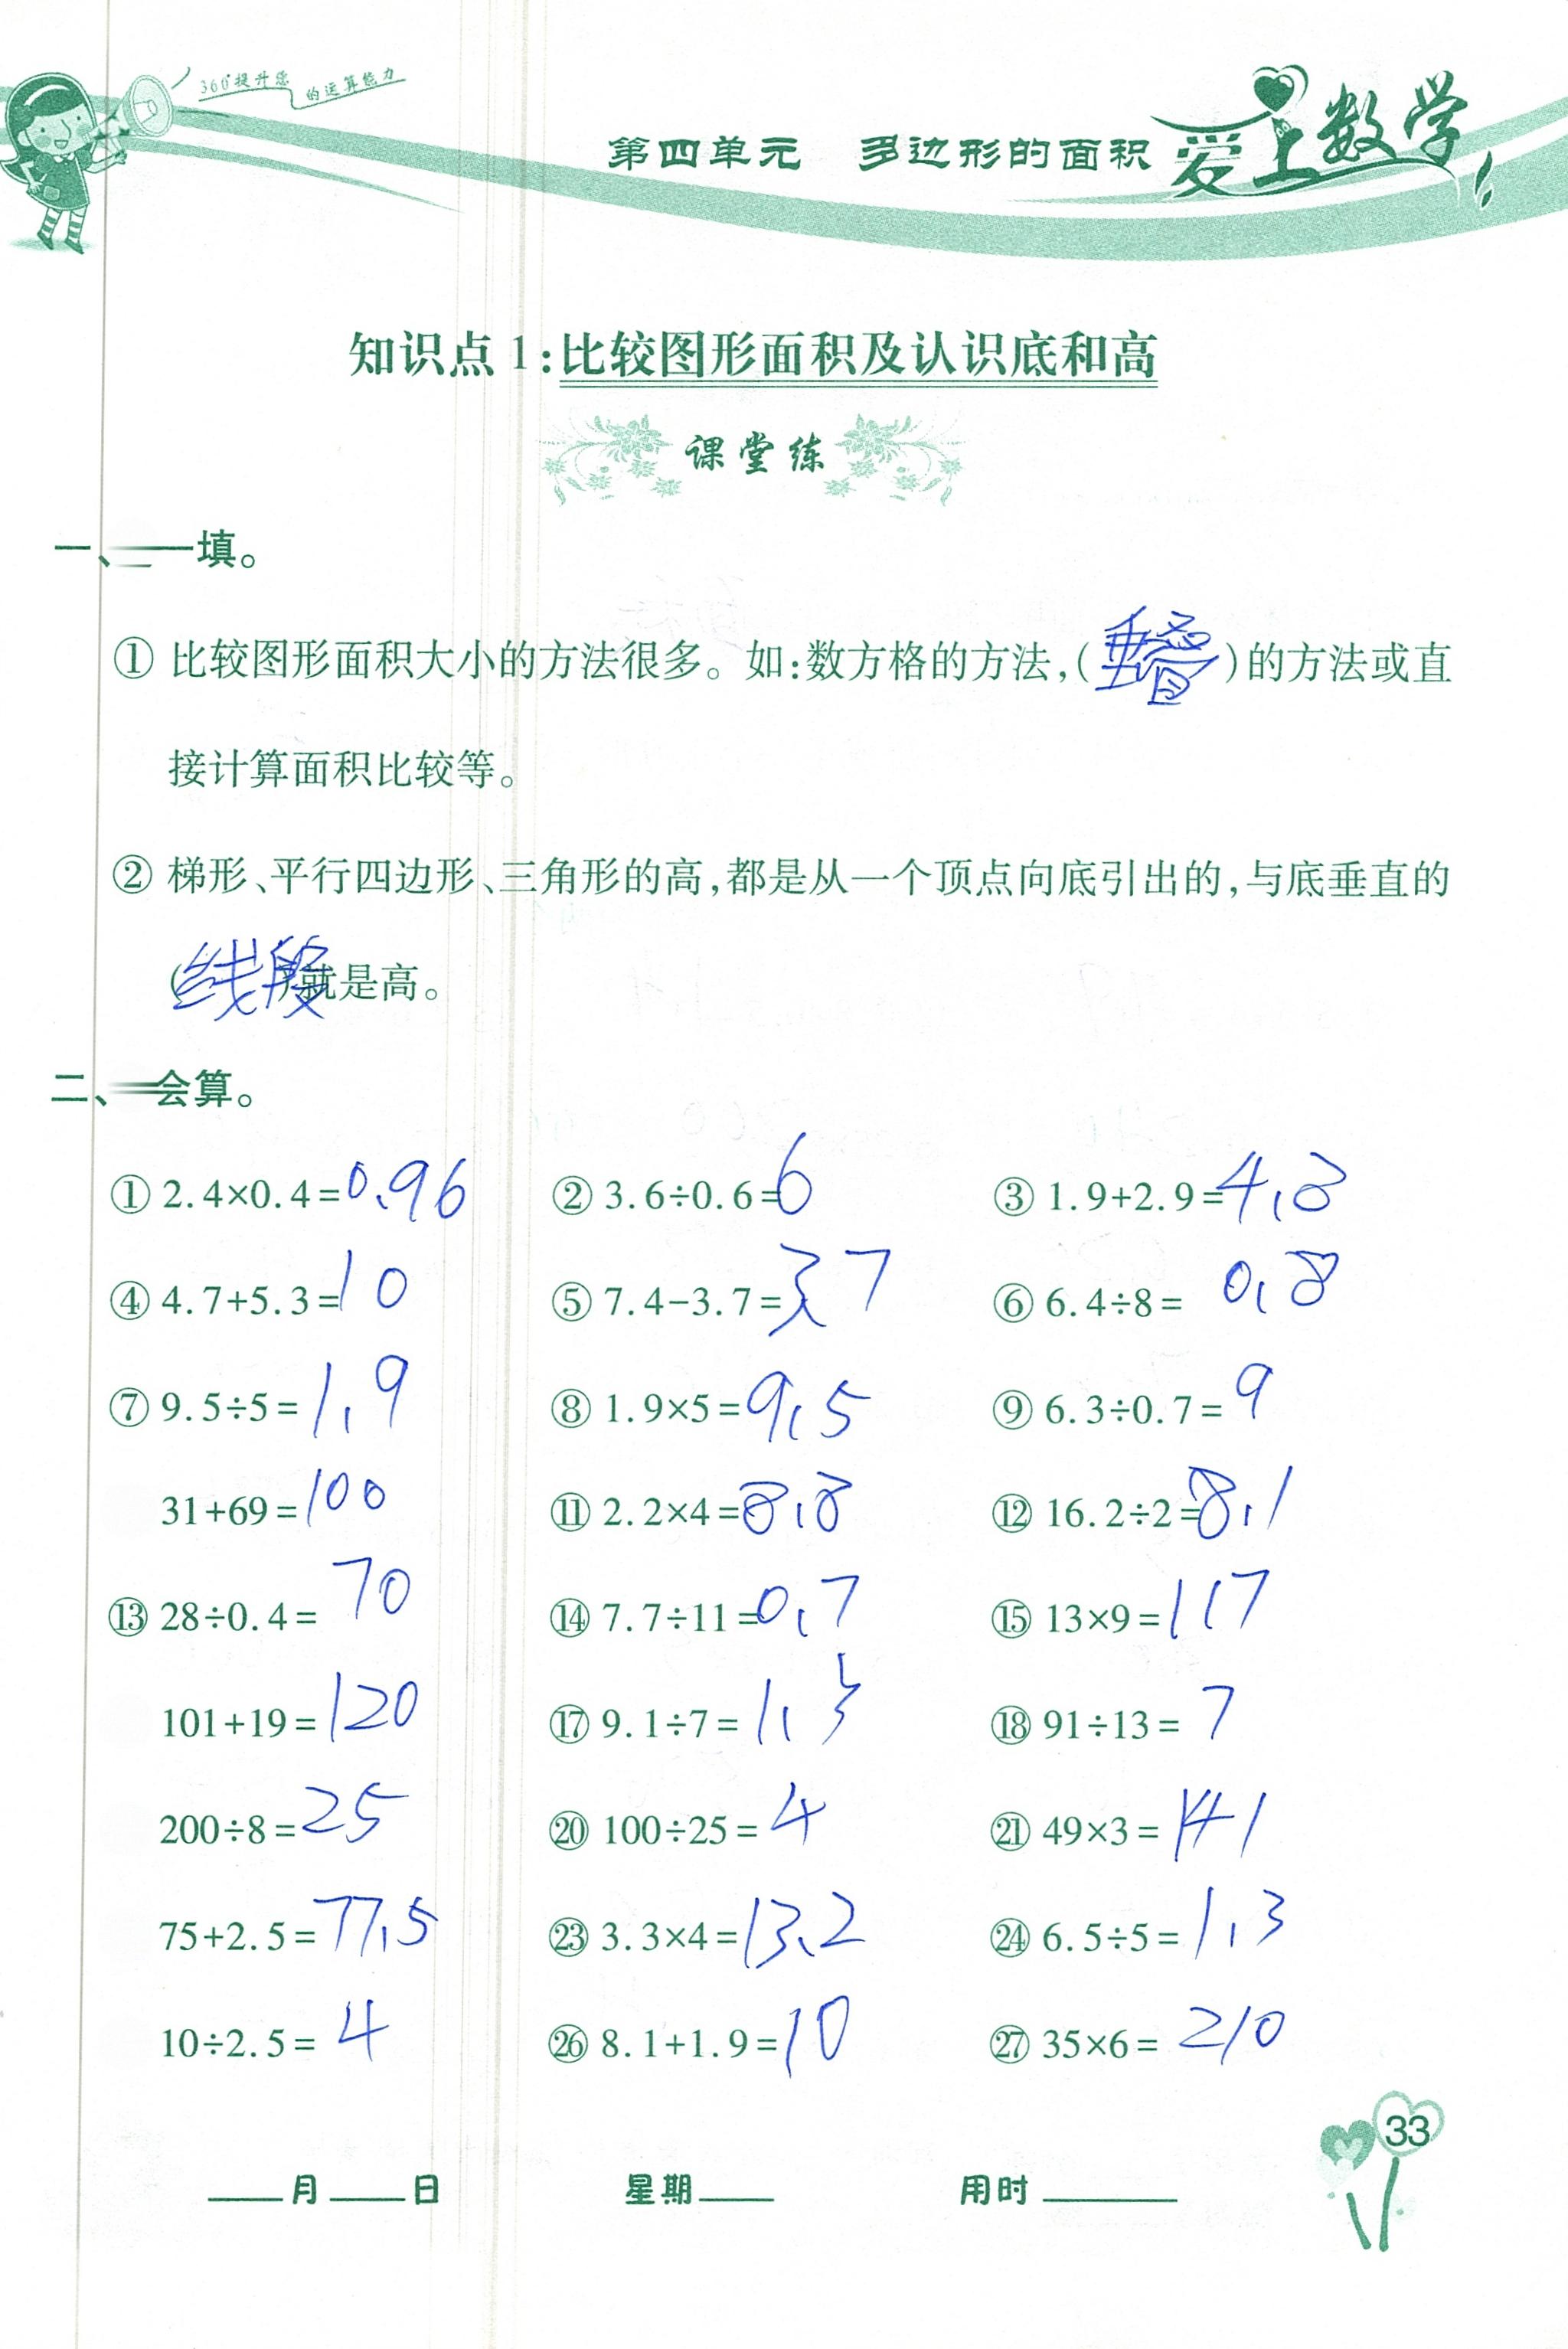 360°提升您的运算能力
第四单元 多边形的面积 爱上数学
知识点1:比较图形面积及认识底和高
课堂练
一、一一填。
① 比较图形面积大小的方法很多。如:数方格的方法,(重叠)的方法或直
接计算面积比较等。
② 梯形、平行四边形、三角形的高,都是从一个顶点向底引出的,与底垂直的
(线段)就是高。
二、一会算。
① 2.4×0.4=0.96 ② 3.6÷0.6=6 ③ 1.9+2.9=4.8
④ 4.7+5.3=10 ⑤ 7.4-3.7=3.7 ⑥ 6.4÷8=0.8
⑦ 9.5÷5=1.9 ⑧ 1.9×5=9.5 ⑨ 6.3÷0.7=9
31+69=100 ⑪ 2.2×4=8.8 ⑫ 16.2÷2=8.1
⑬ 28÷0.4=70 ⑭ 7.7÷11=0.7 ⑮ 13×9=117
101+19=120 ⑰ 9.1÷7=1.3 ⑱ 91÷13=7
200÷8=25 ⑳ 100÷25=4 ㉑ 49×3=141
75+2.5=77.5 ㉓ 3.3×4=13.2 ㉔ 6.5÷5=1.3
10÷2.5=4 ㉖ 8.1+1.9=10 ㉗ 35×6=210
33
____月____日 星期____ 用时______